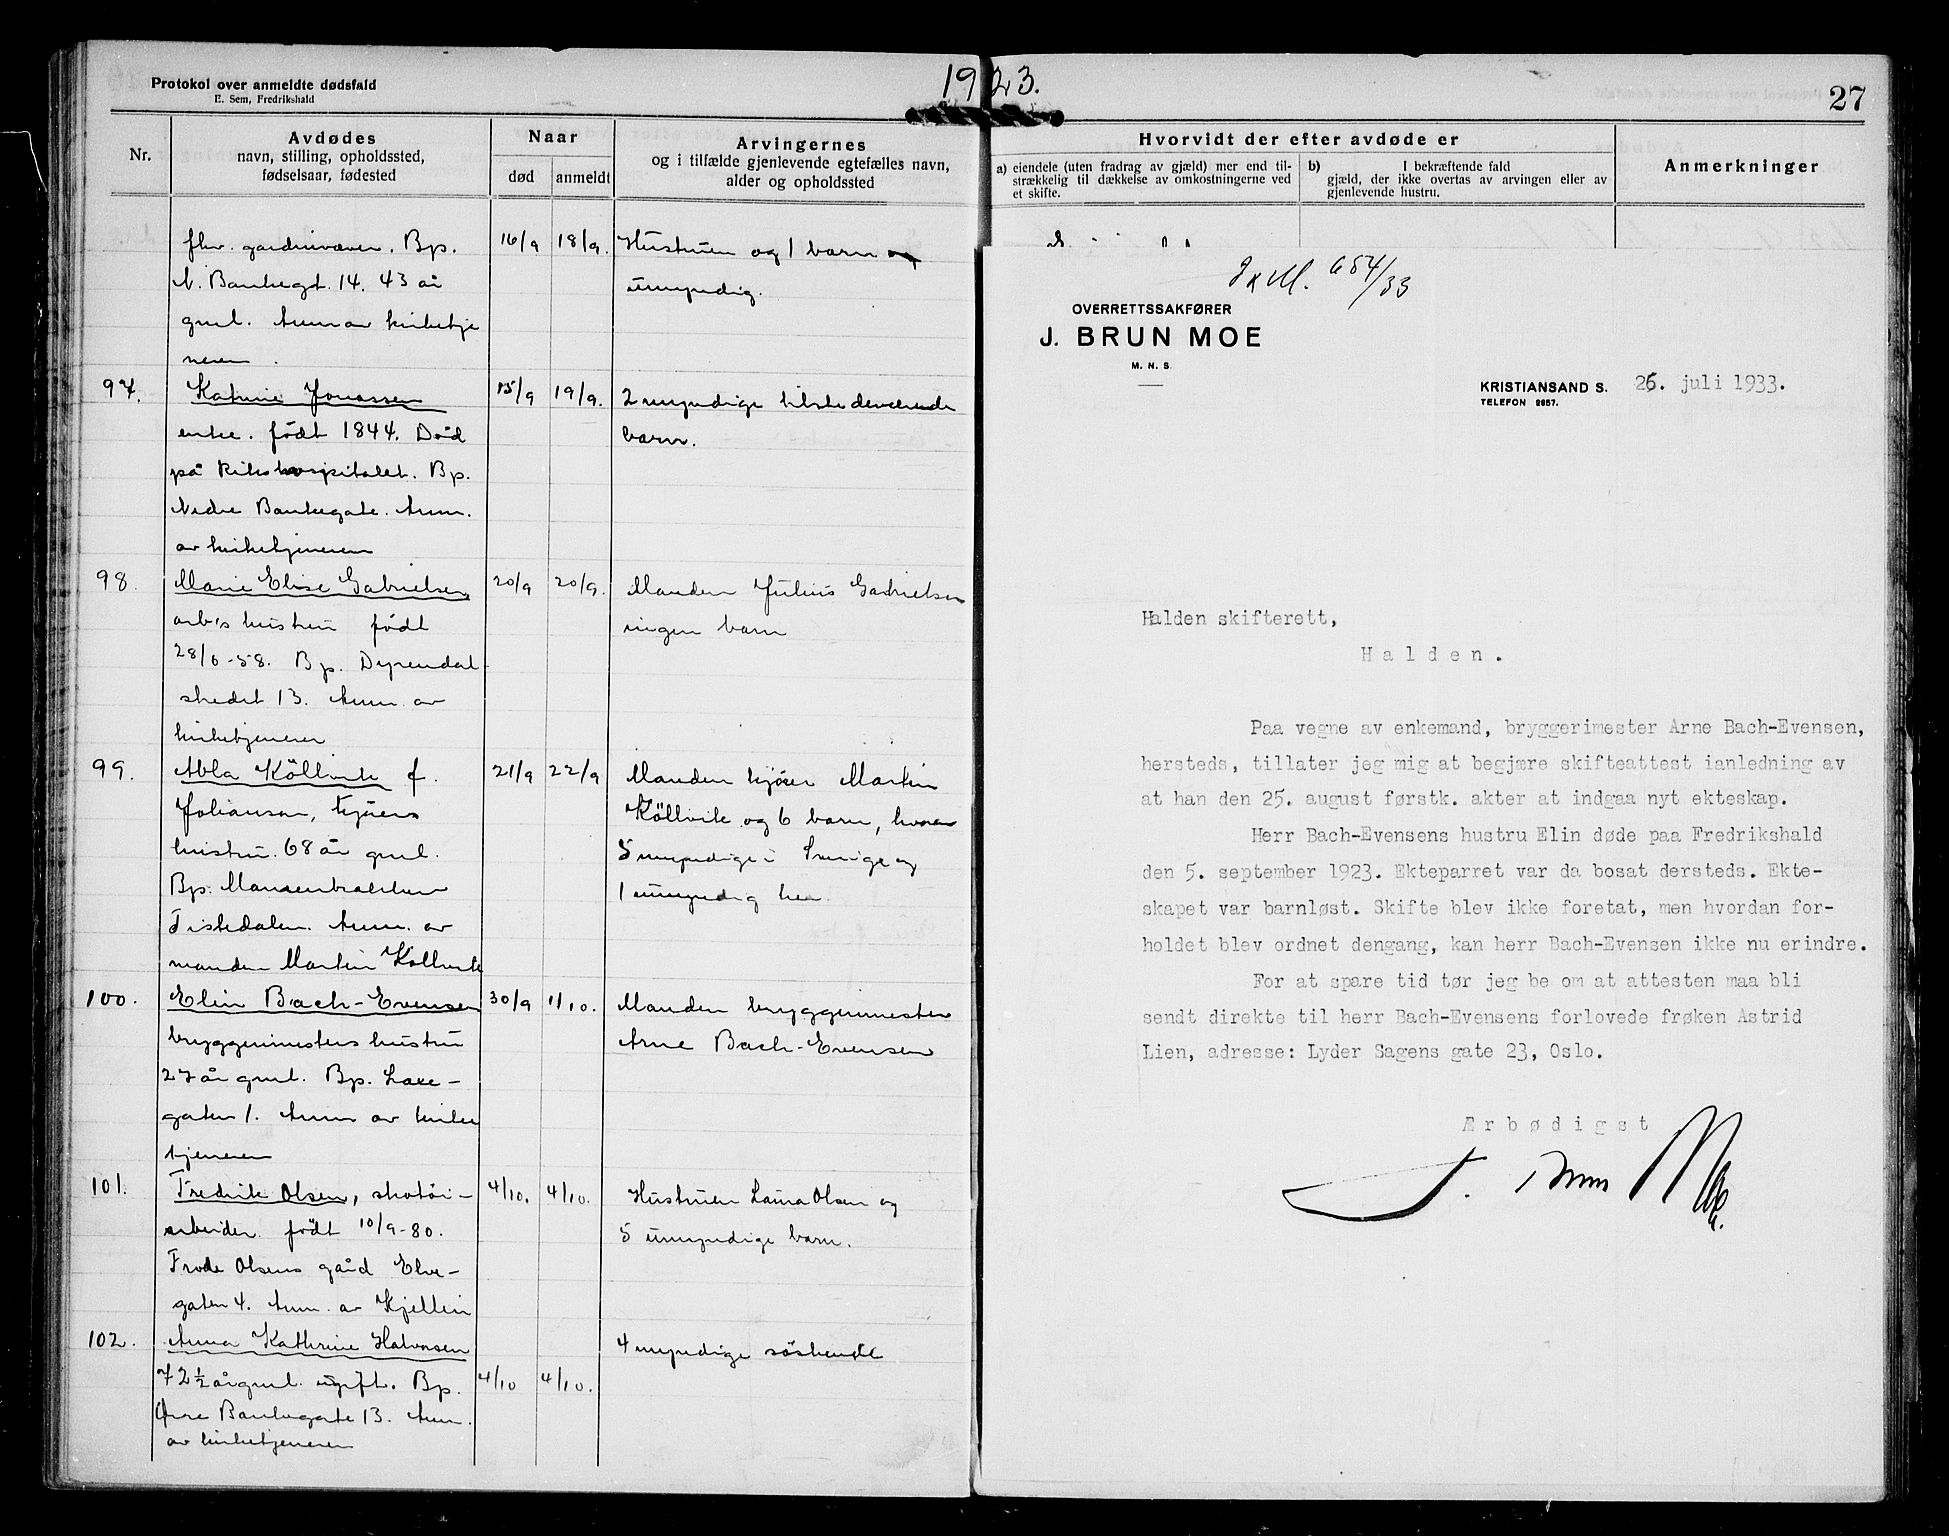 Protokol over anmeldte dødsfald
E. Sem, Fredrikshald
1923.
27
Nr.
Avdødes
navn, stilling, opholdssted,
fødselsaar, fødested
Naar
død
anmeldt
Arvingernes
og i tilfælde gjenlevende egtefælles navn,
alder og opholdssted
Hvorvidt der efter avdøde er
a) eiendele (uten fradrag av gjæld) mer end til-
strækkelig til dækkelse av omkostningerne ved
et skifte.
b) I bekræftende fald
gjæld, der ikke overtas av arvingen eller av
gjenlevende hustru.
Anmerkninger
fhv. gardinvæver. Bp.
N. Bankegt. 14. 43 år
gml. Anm av kirketje
neren.
16/9
18/9.
Hustruen og 1 barn
umyndig.
97.
Katrine Jonassen
enke. født 1844. Død
på Rikshospitalet. Bp.
Nedre Bankegate. Anm.
av kirketjeneren
15/9
19/9.
2 myndige tilstedeværende
barn.
98.
Marie Elise Gabrielsen
arb's hustru født
28/6-58. Bp. Dyrendal
stredet 13. Anm. av
kirketjeneren
20/9
20/9.
Manden Julius Gabrielsen
ingen barn
99.
Abla Köllvik f.
Johanson, kjørers
hustru. 68 år gml.
Bp.
Tistedalen. Anm. av
manden Martin Köllvik
21/9
22/9
Manden kjører Martin
Köllvik og 6 barn, hvorav
5 myndige i Sverige og
1 umyndig her.
100.
Elin Bach-Evensen
bryggerimesters hustru
27 år gml. Bp.
gaten 1. Anm av kirke
tjeneren
30/9
1/10.
Manden bryggerimester
Arne Bach-Evensen
101.
Fredrik Olsen, skotøi-
arbeider. født 10/9-80.
Frode Olsens gård Elve-
gaten 4. Anm. av Kjellin
4/10.
4/10.
Hustruen Laura Olsen og
5 umyndige barn.
102.
Anna Kathrine Halvorsen
72½ år gml. ugift. Bp.
Øvre Bankegate 13. Anm.
av kirketjeneren
4/10
4/10.
4 myndige søskende
654/33
OVERRETTSSAKFØRER
J. BRUN MOE
M. N. S.
KRISTIANSAND S. 26. juli 1933.
TELEFON 2657.
Halden skifterett,
Halden.
Paa vegne av enkemand, bryggerimester Arne Bach-Evensen,
hersteds, tillater jeg mig at begjære skifteattest ianledning av
at han den 25. august førstk. akter at indgaa nyt ekteskap.
Herr Bach-Evensens hustru Elin døde paa Fredrikshald
den 5. september 1923. Ekteparret var da bosat dersteds. Ekte-
skapet var barnløst. Skifte blev ikke foretat, men hvordan for-
holdet blev ordnet dengang, kan herr Bach-Evensen ikke nu erindre.
For at spare tid tør jeg be om at attesten maa bli
sendt direkte til herr Bach-Evensens forlovede frøken Astrid
Lien, adresse: Lyder Sagens gate 23, Oslo.
Ærbødigst
J. Brun Moe